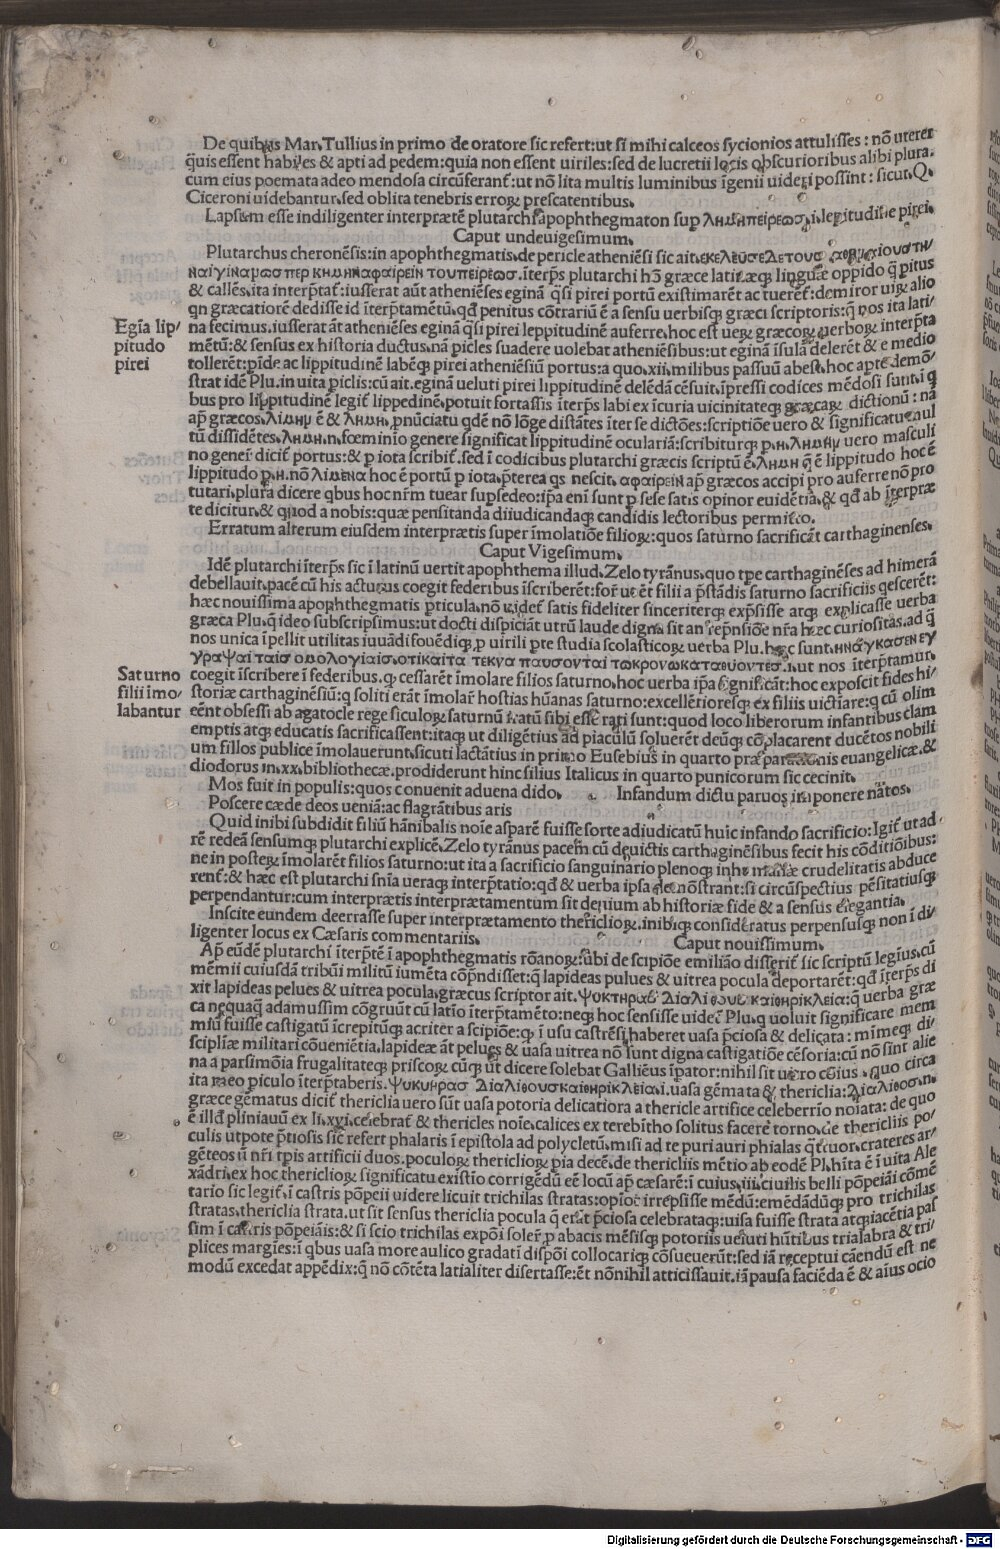 De quibus Mar. Tullius in primo de oratore sic refert: ut si mihi calceos sycionios attulisses: nō uterer
q̄uis essent habiles & apti ad pedem: quia non essent uiriles: sed de lucretii locis obscurioribus alibi plura.
cum eius poemata adeo mendosa circūferant̄: ut nō lita multis luminibus īgenii uideri possint: sicut. Q.
Ciceroni uidebantur. sed oblita tenebris errorꝝ prescatentibus.
Lapsum esse indiligenter interprætē plutarchi apophthegmaton sup λημηπειρεωσ .i. lepitudine pirei.
Caput undeuigesimum.
Plutarchus cheronēsis: in apophthegmatis. de pericle atheniēsi sic ait. εκελεῦσε Δε τουσ αθηναιουσ τὴν
ναιγιναμωσπερ κημηναφαιρεῖν τουπειρέωσ. īterp̄s plutarchi hō græce latinæq; linguæ oppido q̄ pitus
& callēs. ita interp̄tat̄: iusserat aūt atheniēses eginā q̄si pirei portū existimarēt ac tuerēt: demiror uiꝝ alio
qn græcatiorē dedisse id īterp̄tamētū. qđ penitus cōtrariū ē a sensu uerbisq; græci scriptoris: q̄ nos ita lati/
na fecimus. iusserat āt atheniēses eginā q̄si pirei leppitudinē auferre. hoc est ueꝝ græcoꝝ uerboꝝ interp̄ta
mētū: & sensus ex historia ductus. nā picles suadere uolebat atheniēsibus: ut eginā īsulā delerēt & e medio
tollerēt: pīde ac lippitudinē labēq; pirei atheniēsiū portus: a quo .xii. milibus passuū abest. hoc apte demō/
strat idē Plu. in uita piclis: cū ait. eginā ueluti pirei lippitudinē delēdā cēsuit. īpressi codices mēdosi sunt. ī q
bus pro lippitudinē legit̄ lippedinē. potuit fortassis īterp̄s labi ex īcuria uicinitateq; græcaꝝ dictionū: nā
ap̄ græcos. λιμην ē & λημη. pnūciatu qdē nō lōge distātes īter se dictōes: scriptiōe uero & significatu eaul
tū dissidētes. λημη. n. fœminio genere significat lippitudinē oculariā: scribiturq; p .η. λημην uero masculi
no generi dicit̄ portus: & p iota scribit̄. sed ī codicibus plutarchi græcis scriptū ē. λημη q̄ ē lippitudo hoc ē
lippitudo p .η. nō λιμενα hoc ē portū p iota. pterea qs nescit. αφαιρειν ap̄ græcos accipi pro auferre nō pro
tutari. plura dicere qbus hoc nr̄m tuear supsedeo: ip̄a eni sunt p sese satis opinor euidētia. & qđ ab īterpræ
te dicitur. & quod a nobis: quæ pensitanda diiudicandaq; candidis lectoribus permitto.
Erratum alterum eiusdem interprætis super īmolatiōe filioꝝ: quos saturno sacrificāt carthaginenses.
Caput Vigesimum.
Idē plutarchi īterp̄s sic ī latinū uertit apophthema illud. Zelo tyrānus. quo tpe carthaginēses ad himerā
debellauit. pacē cū his acturus coegit federibus īscriberēt: for̄ ut ēt filii a p̄stādis saturno sacrificiis gescerēt:
hæc nouissima apophthegmatis pticula. nō uidet̄ satis fideliter sinceriterq; exp̄sisse atq; explicasse uerba
græca Plu. q̄ ideo subscripsimus: ut docti dispiciāt utrū laude digna sit an rep̄nsiōe nr̄a hæc curiositas. ad q̄
nos unica īpellit utilitas iuuādi fouēdiq; p uirili pte studia scolasticoꝝ uerba Plu. hæc sunt. ηνάγκασεν εγ
γραψαι ταισ ομολογίαισ. οτικαιτα τεκνα παυσονται τωκρονωκαταθυοντεσ. i. ut nos īterp̄tamur.
coegit īscribere ī federibus. q; cessarēt īmolare filios saturno. hoc uerba ip̄a significāt: hoc exposcit fides hi/
storiæ carthaginēsiū: q soliti erāt īmolar̄ hostias hūanas saturno: excellētioresq; ex filiis uictiare: q cū olim
eēnt obsessi ab agatocle rege siculoꝝ saturnū iratū sibi esse rati sunt: quod loco liberorum infantibus clam
emptis atq; educatis sacrificassent: itaq; ut diligētius ad piaculū soluerēt deūq; cōplacarent ducētos nobili
um filios publice īmolauerunt. sicuti lactātius in primo Eusebius in quarto præparationis euangelicæ. &
diodorus in .xx. bibliothecæ. prodiderunt hinc silius Italicus in quarto punicorum sic cecinit.
Mos fuit in populis: quos conuenit aduena dido. Infandum dictu paruos imponere nātos.
Poscere cæde deos ueniā: ac flagrātibus aris
Quid inibi subdidit filiū hānibalis noīe asparē fuisse sorte adiudicatū huic infando sacrificio: Igit̄ ut ad
rē redeā sensumq; plutarchi explicē. Zelo tyrānus pacem̄ cū deuictis carthaginēsibus fecit his cōditiōibus:
ne in posteꝝ īmolarēt filios saturno: ut ita a sacrificio sanguinario plenoq; inhumanæ crudelitatis abduce
rent̄: & hæc est plutarchi snīa ueraq; interp̄tatio: qđ & uerba ipsa demōstrant: si circūspectius pēsitatiusq;
perpendantur: cum interprætis interprætamentum sit deuium ab historiæ fide & a sensus elegantia.
Inscite eundem deerrasse super interprætamento thericlioꝝ. inibiq; consideratus perpensusq; non ī di/
ligenter locus ex Cæsaris commentariis. Caput nouissimum.
Ap̄ eūdē plutarchi īterp̄tē ī apophthegmatis rōanoꝝ: ubi de scipiōe emiliāo disserit̄ sic scriptū legius. cū
mēmii cuiusdā tribūi militū iumēta cōp̄ndisset: q̄ lapideas pulues & uitrea pocula deportarēt: qđ īterp̄s di
xit lapideas pelues & uitrea pocula. græcus scriptor ait. ψοκτηρασ Διαλιθουσ καιθηρικλεια: q̄ uerba græ
ca neq̄uaq̄ adamussim cōgruūt cū latio īterp̄tamēto: neq; hoc sensisse uidet̄ Plu. q uoluit significare mem
miū fuisse castigatū īcrepitūq; acriter a scipiōe: q; ī usu castrēsi haberet uasa p̄ciosa & delicata: mīmeq; di/
sciplīæ militari cōueniētia. lapideæ āt pelues & uasa uitrea nō sunt digna castigatiōe cēsoria: cū nō sīnt alie
na a parsimōia frugalitateq; priscoꝝ: cūq; ut dicere solebat Galliēus īpator: nihil sit uitro cōius. quo circa
ita meo piculo īterp̄taberis. ψυκτηρασ Διαλιθουσκαιθηρικλεια. i. uasa gēmata & thericlia: Διαλιθοσ. n.
græce gēmatus dicit̄ thericlia uero sūt uasa potoria delicatiora a thericle artifice celeberrīo noīata: de quo
ē illđ pliniauū ex li. xvi. celebrat̄ & thericles noīe. calices ex terebītho solitus facere torno. de thericliis po/
culis utpote p̄tiosis sic refert phalaris ī epistola ad polycletū. misi ad te puri auri phialas q̄ttuor. crateres ar/
gēteos ū nr̄i tpis artificii duos. poculoꝝ thericlioꝝ pia decē. de thericliis mētio ab eodē Pl. hīta ē ī uita Ale
xādri. ex hoc thericlioꝝ significatu existīo corrigēdū eē locū ap̄ cæsarē: ī cuius .iii. ciuilis belli pōpeiāi cōmē
tario sic legit̄. ī castris pōpeii uidere licuit trichilas stratas: opīor irrepsisse mēdū: emēdādūq; pro trichilas
stratas. thericlia strata. ut sit sensus thericlia pocula q̄ erāt p̄ciosa celebrataq; uisa fuisse strata atq; iacētia pas
sim ī castris pōpeiāis: & si scio trichilas expōi soler̄ p abacis mēsisq; potoriis ueluti hūtibus trialabra & tri/
plices margīes: ī qbus uasa more aulico gradatī dispōi collocariq; cōsueuerūt: sed iā receptui cāendū est ne
modū excedat appēdix: q̄ nō cōtēta latialiter disertasse: ēt nōnihil atticissauit. iā pausa faciēda ē & aīus ocio
Egīa lip/
pitudo
pirei
Saturno
filii īmo/
labantur
Digitalisierung gefördert durch die Deutsche Forschungsgemeinschaft - DFG